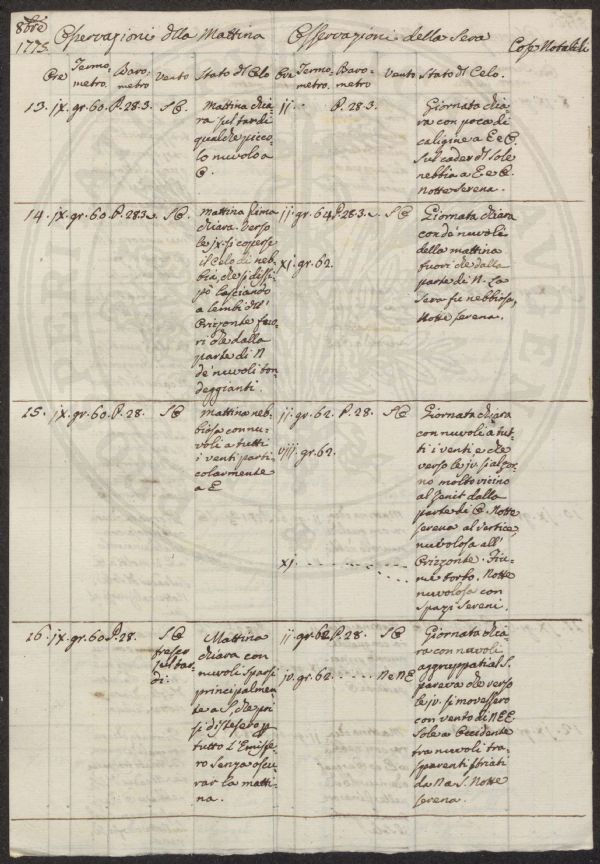 8bre
1775
Osservazioni dlla Mattina
Osservazioni della Sera
Cose Notabili
Ore Termometro. Barometro Vento Stato dl Celo.
Ore Termometro. Barometro. Vento Stato dl Celo.
13. ix. gr. 60. P. 28.3. SO.
Mattina chia-
ra sul tardi
qualche picco-
lo nuvolo a
O.
ii. . P. 28.3.
Giornata chia-
ra con poca di
caligine a E e O.
Sul cader dl Sole
nebbia a E e O.
Notte Serena.
14. ix. gr. 60. P. 28.3. SO.
Mattina prima
chiara. Verso
le ix. si coperse
il Celo di neb-
bia, che si dissi-
pò lasciando
a lembi dll'
Orizzonte fuo-
ri che dalla
parte di N
de' nuvoli ton-
deggianti.
ii. gr. 64. P. 28.3. SO
Giornata chiara
con de' nuvoli
della mattina
fuori che dalla
parte di N. La
Sera fu nebbiosa,
Notte serena.
xi. gr. 62.
15. ix. gr. 60. P. 28. SO
Mattina neb-
biosa con nu-
voli a tutti
i venti parti-
colarmente
a E
ii. gr. 62. P. 28. SO
Giornata chiara
con nuvoli a tut-
ti i venti e che
verso le iv. si alzor-
no molto vicino
al Zenit dalla
parte di O. Notte
serena al vertice,
nuvolosa all'
Orizzonte. Fiu-
me torbo. Notte
nuvolosa con
Spazi Sereni.
viii. gr. 62.
xi.
16. ix. gr. 60. P. 28. SO
fresco
sul tar-
di.
Mattina
chiara con
nuvoli Sparsi
principalmen-
te a S, che poi
si distesero p
tutto l'Emisfe-
ro Senza oscu-
rar la matti-
na.
ii. gr. 62. P. 28. SO
iv. gr. 62. NeNE
Giornata chia-
ra con nuvoli
aggruppati al S.
pareva che verso
le iv. si movessero
con vento di NEE.
Sole a Occidente
tra nuvoli tra-
sparenti striati
da N a S. Notte
serena.